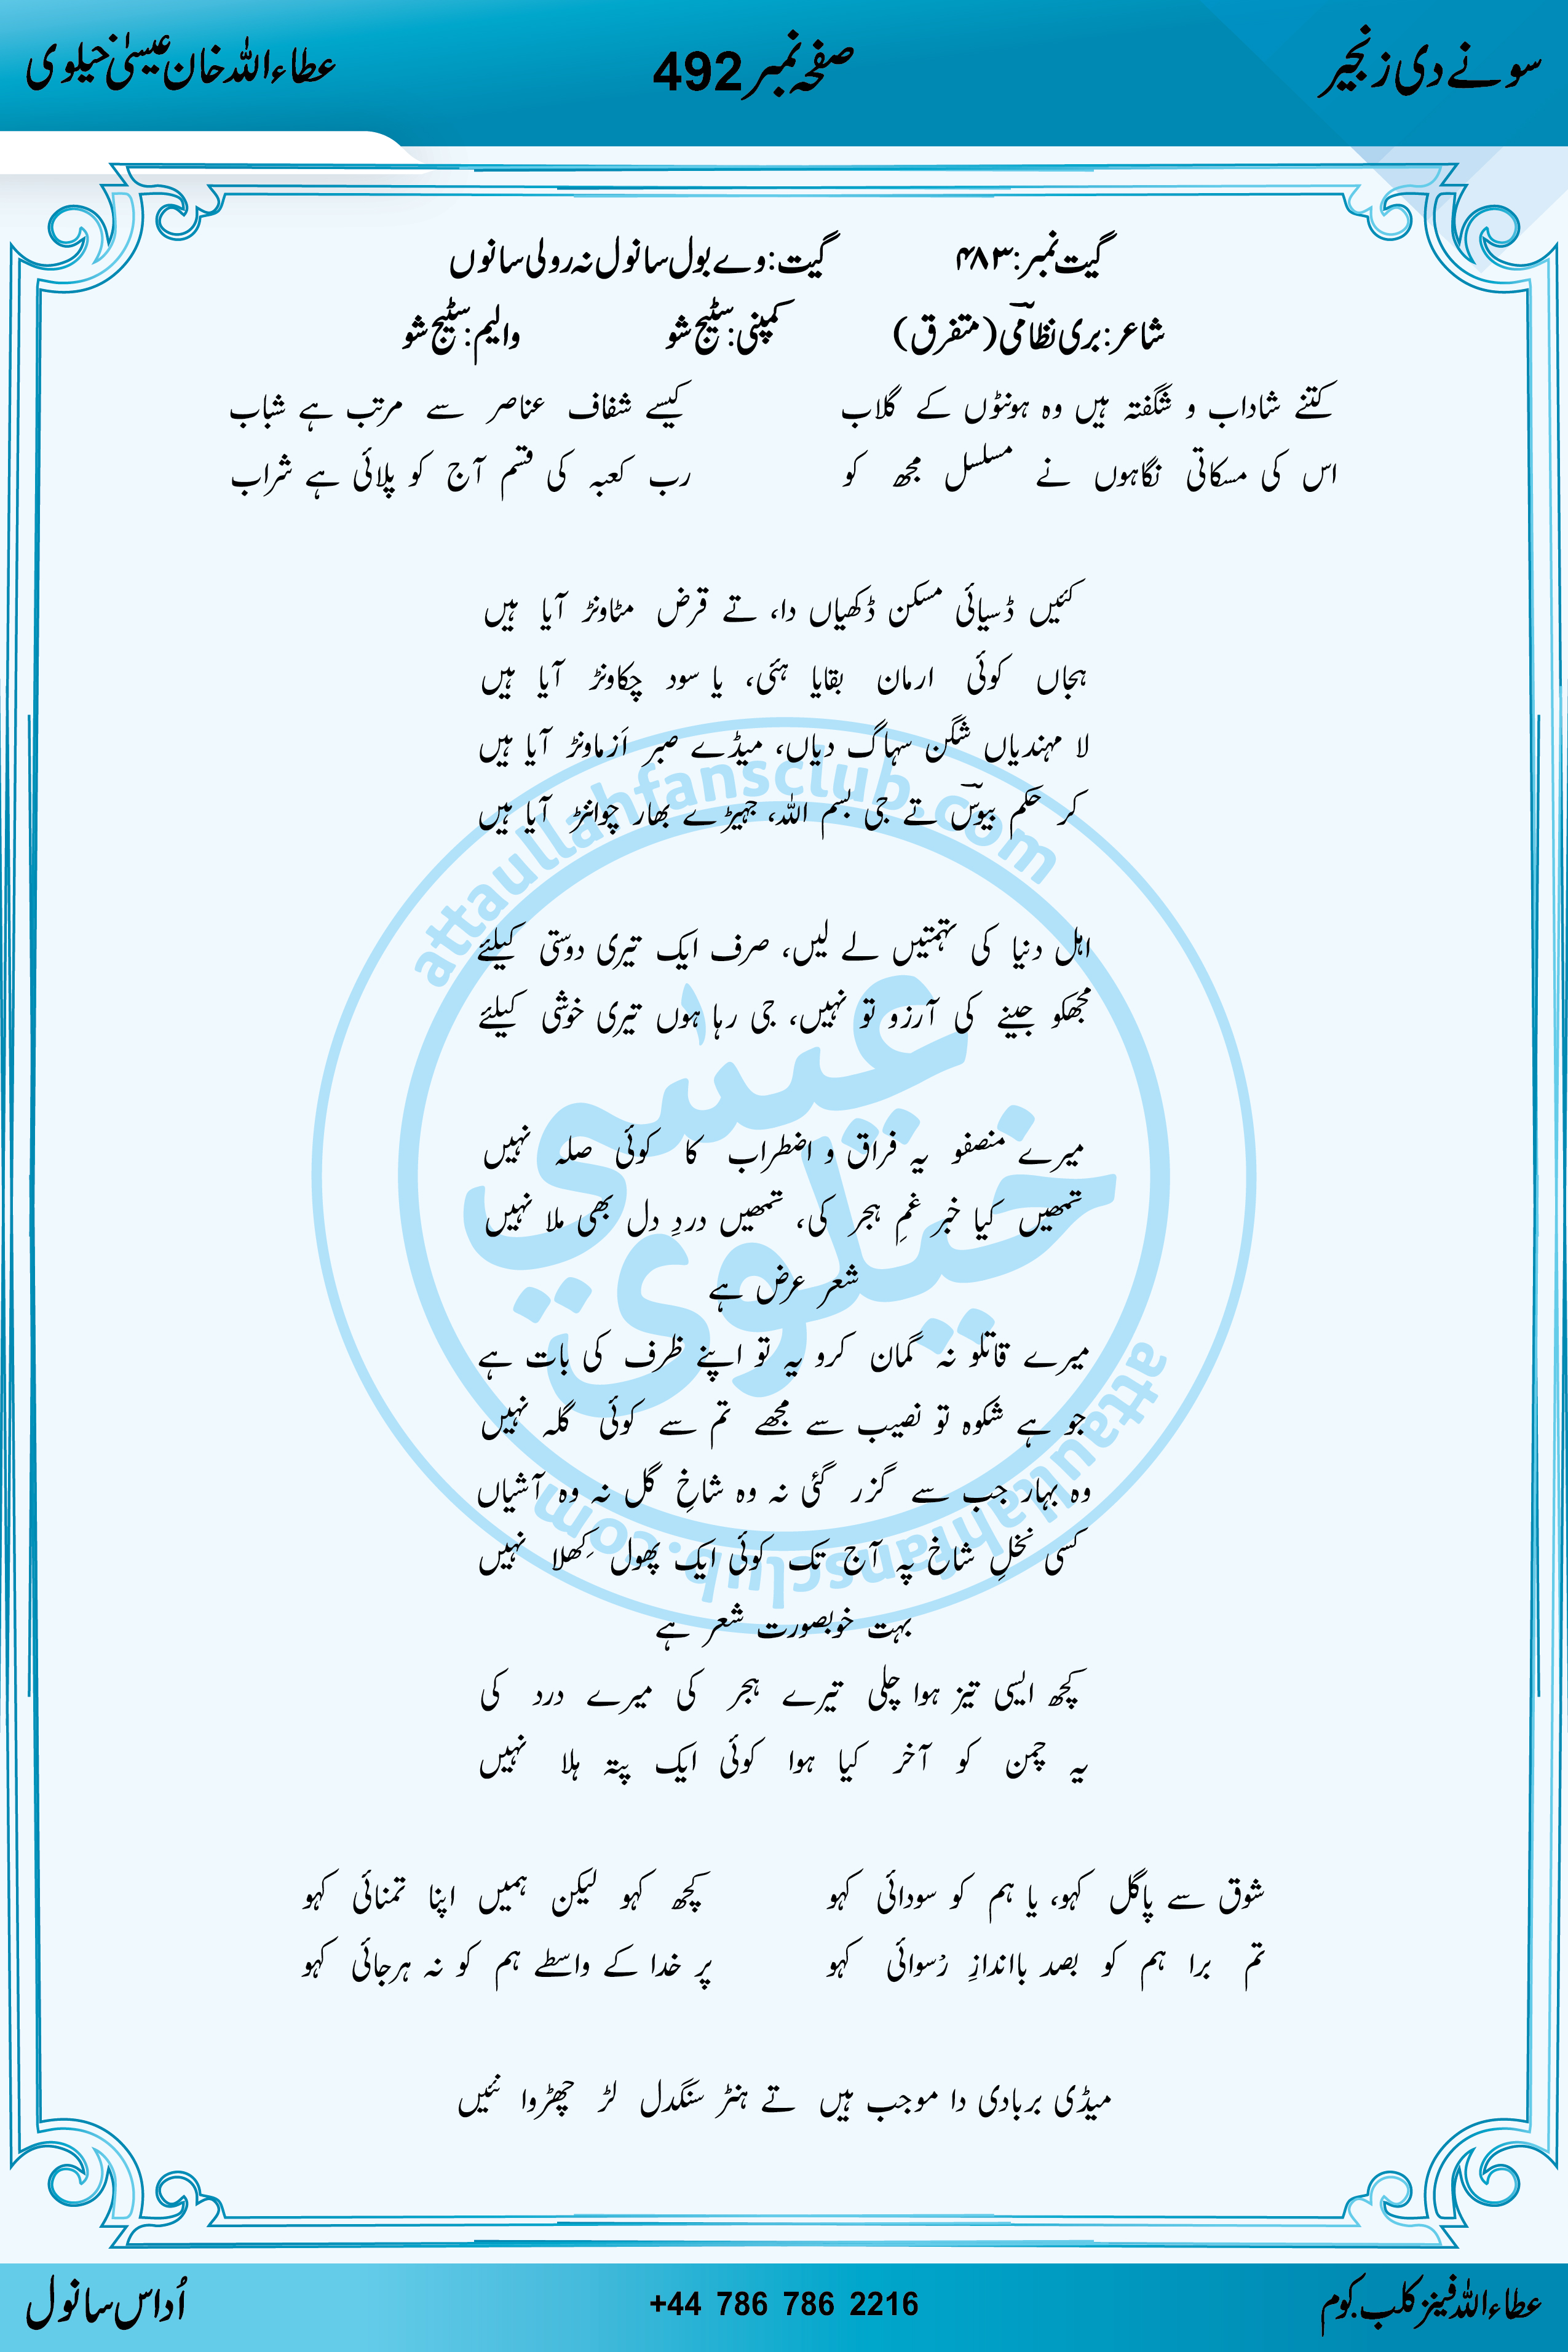 سونے دی زنجیر صفحہ نمبر 492 عطاءاللہ خان عیسیٰ خیلوی
گیت نمبر: ۴۸۳ گیت: وے بول سانول نہ رولی سانوں
شاعر: بری نظامیؔ (متفرق) کمپنی: سٹیج شو والیم: سٹیج شو
کتنے شاداب و شگفتہ ہیں وہ ہونٹوں کے گلاب کیسے شفاف عناصر سے مرتب ہے شباب
اس کی مسکاتی نگاہوں نے مسلسل مجھ کو رب کعبہ کی قسم آج کو پلائی ہے شراب
کئیں ڈسیائی مسکن ڈکھیاں دا، تے قرض مٹاونڑ آیا ہیں
ہجاں کوئی ارمان بقایا ہئی، یا سود چکاونڑ آیا ہیں
لا مہندیاں شگن سہاگ دیاں، میڈے صبر اَزماونڑ آیا ہیں
کر حکم بیوسؔ تے جی بسم اللہ، جہیڑے بھار چوانڑ آیا ہیں
اہل دنیا کی تہمتیں لے لیں، صرف ایک تیری دوستی کیلئے
مجھکو جینے کی آرزو تو نہیں، جی رہا ہوں تیری خوشی کیلئے
میرے منصفو یہ فراق و اضطراب کا کوئی صلہ نہیں
تمھیں کیا خبر غمِ ہجر کی، تمھیں دردِ دل بھی ملا نہیں
شعر عرض ہے
میرے قاتلو نہ گمان کرو یہ تو اپنے ظرف کی بات ہے
جو ہے شکوہ تو نصیب سے مجھے تم سے کوئی گلہ نہیں
وہ بہار جب سے گزر گئی نہ وہ شاخِ گل نہ وہ آشیاں
کسی نخلِ شاخ پہ آج تک کوئی ایک پھول کِھلا نہیں
بہت خوبصورت شعر ہے
کچھ ایسی تیز ہوا چلی تیرے ہجر کی میرے درد کی
یہ چمن کو آخر کیا ہوا کوئی ایک پتہ ہلا نہیں
شوق سے پاگل کہو، یا ہم کو سودائی کہو کچھ کہو لیکن ہمیں اپنا تمنائی کہو
تم برا ہم کو بصد بااندازِ رُسوائی کہو پر خدا کے واسطے ہم کو نہ ہرجائی کہو
میڈی بربادی دا موجب ہیں تے ہنڑ سنگدل لڑ چھڑوا نئیں
عطاءاللہ فینز کلب.کوم +44 786 786 2216 اُداس سانول
attaullahfansclub.com
عیسٰی
خیلوی
attaullahfansclub.com